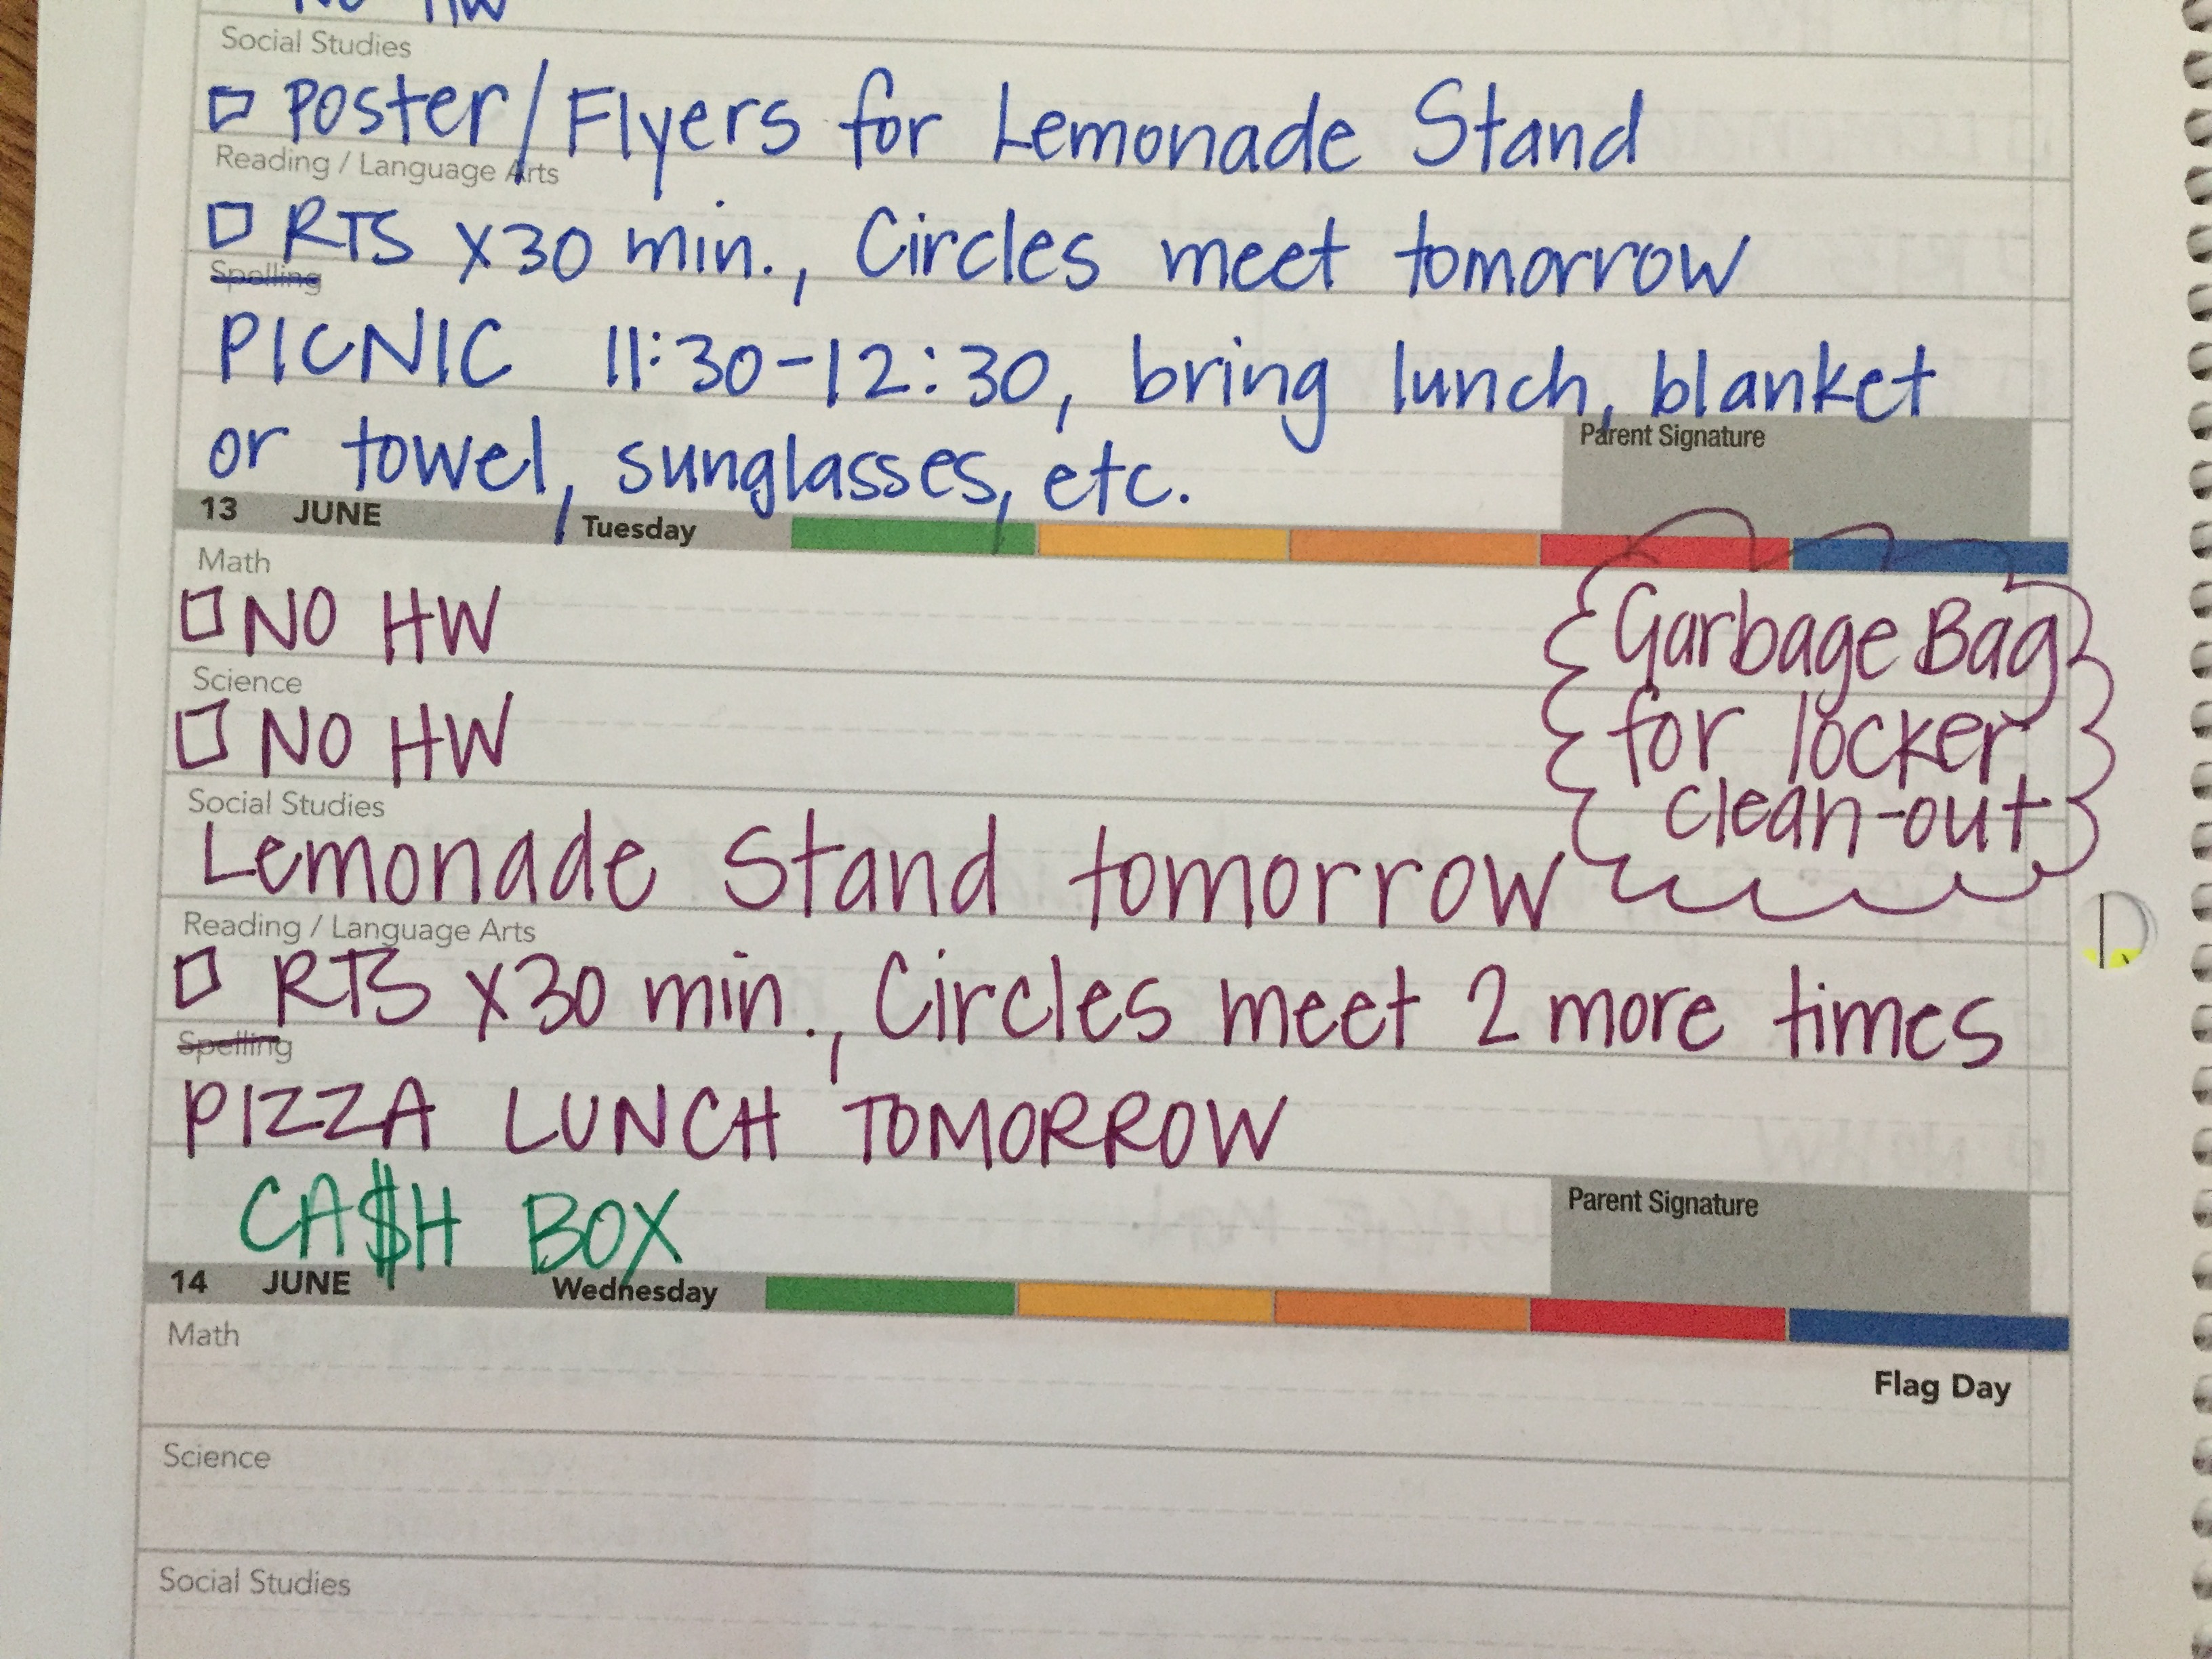 NO HW
Social Studies
POSter/Flyers for Lemonade Stand
Reading / Language Arts
RTS x30 min., Circles meet tomorrow
Spelling
PICNIC 11:30-12:30, bring lunch, blanket
or towel, sunglasses, etc.
Parent Signature
13 JUNE Tuesday
Math
NO HW
Garbage Bag
for locker
clean-out
Science
NO HW
Social Studies
Lemonade Stand tomorrow
Reading / Language Arts
RTS x30 min., Circles meet 2 more times
Spelling
PIZZA LUNCH TOMORROW
CA$H BOX
Parent Signature
14 JUNE Wednesday
Math
Flag Day
Science
Social Studies